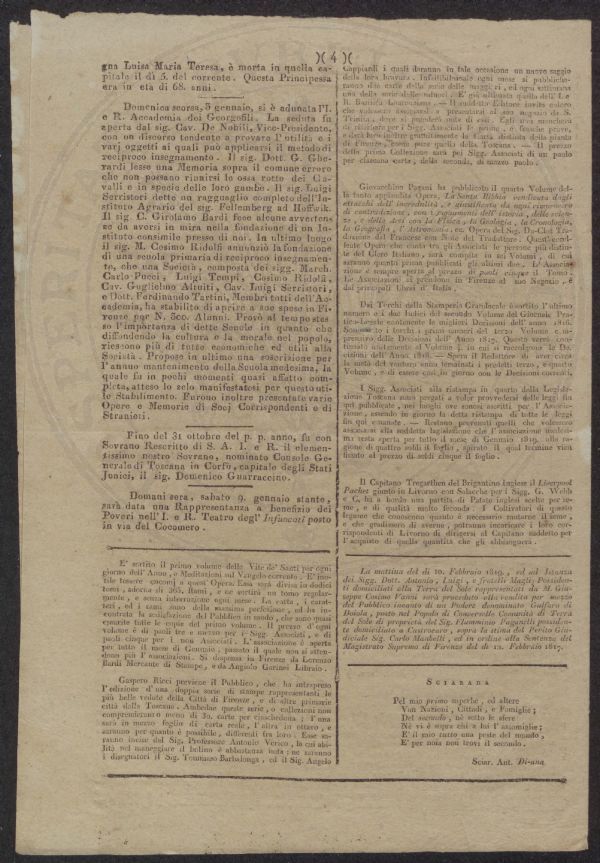 )( 4 )(
gna Luisa Maria Teresa, è morta in quella ca-
pitale il dì 5. del corrente. Questa Principessa
era in età di 68. anni.
Domenica scorsa, 3 gennaio, si è adunata l'I.
e R. Accademia dei Georgofili. La seduta fu
aperta dal sig. Cav. De Nobili, Vice-Presidente,
con un discorso tendente a provare l'utilità e i
varj oggetti ai quali può applicarsi il metodo di
reciproco insegnamento. Il sig. Dott. G. Ghe-
rardi lesse una Memoria sopra il comune errore
che non possano riunirsi le ossa rotte dei Ca-
valli e in specie delle loro gambe. Il sig. Luigi
Serristori dette un ragguaglio completo dell'In-
stituto Agrario del sig. Fellemberg ad Hoffwik.
Il sig. C. Girolamo Bardi fece alcune avverten-
ze da aversi in mira nella fondazione di un In-
stituto consimile presso di noi. In ultimo luogo
il sig. M. Cosimo Ridolfi annunziò la fondazione
di una scuola primaria di reciproco insegnamen-
to, che una Società, composta dei sigg. March.
Carlo Pucci, Luigi Tempi, Cosimo Ridolfi,
Cav. Guglielmo Altuiti, Cav. Luigi Serristori,
e Dott. Ferdinando Tartini, Membri tutti dell'Ac-
cademia, ha stabilito di aprire a sue spese in Fi-
renze per N. 300. Alunni. Provò al tempo stes-
so l'importanza di dette Scuole in quanto che
diffondendo la cultura e la morale nel popolo,
riescono più di tutto economiche ed utili alla
Società. Propose in ultimo una soscrizione per
l'annuo mantenimento della Scuola medesima, la
quale fu in pochi momenti quasi affatto com-
pleta, atteso lo zelo manifestatosi per questo uti-
le Stabilimento. Furono inoltre presentate varie
Opere e Memorie di Socj Corrispondenti e di
Stranieri.
Fino del 31 ottobre del p. p. anno, fu con
Sovrano Rescritto di S. A. I. e R. il clemen-
tissimo nostro Sovrano, nominato Console Ge-
nerale di Toscana in Corfù, capitale degli Stati
Jonici, il sig. Domenico Guarraccino.
Domani sera, sabato 9. gennaio stante,
sarà data una Rappresentanza a benefizio dei
Poveri nell'I. e R. Teatro degl' Infuocati posto
in via del Cocomero.
E' sortito il primo volume delle Vite de' Santi per ogni
giorno dell'Anno, e Meditazioni sul Vangelo corrente. E' inu-
tile tessere encomj a quest'Opera. Essa sarà divisa in dodici
tomi, adorna di 365. Rami, e ne sortirà un tomo regolar-
mente, e senza interruzione ogni mese. La carta, i carat-
teri, ed i rami sono della massima perfezione, ed ha in-
contrata la sodisfazione del Pubblico in modo, che sono quasi
esaurite tutte le copie del primo volume. Il prezzo d'ogni
volume è di paoli tre e mezzo per i Sigg. Associati, e di
paoli cinque per i non Associati. L'associazione è aperta
per tutto il mese di Gennaio, passato il quale non si atten-
dono più l'associazioni. Si dispensa in Firenze da Lorenzo
Bardi Mercante di Stampe, e da Angiolo Garinei Libraio.
Gaspero Ricci previene il Pubblico, che ha intrapreso
l'edizione d'una doppia serie di stampe rappresentanti le
più belle vedute della Città di Firenze, e di altre primarie
città della Toscana. Ambedue queste serie, o collezioni non
comprenderanno meno di 30. carte per ciascheduna; l'una
sarà in mezzo foglio di carta reale, l'altra in ottavo, e
saranno per quanto è possibile, differenti fra loro. Esse sa-
ranno incise dal Sig. Professore Antonio Verico, la cui abi-
lità nel maneggiare il bulino è abbastanza nota: ne saranno
i disegnatori il Sig. Tommaso Bartolonga, ed il Sig. Angelo
Cappiardi i quali daranno in tale occasione un nuovo saggio
della loro bravura. Infallibilmente ogni mese si pubbliche-
ranno due carte della serie delle maggiori, ed ogni settimana
Giovacchino Pagani ha pubblicato il quarto Volume del-
la tanto applaudita Opera, La Santa Bibbia vendicata dagli
attacchi dell'incredulità, e giustificata da ogni rimprovero
di contradizione, con i monumenti dell'istoria, delle scien-
ze, e delle arti con la Fisica, la Geologia, la Cronologia,
la Geografia, l'Astronomia, ec. Opera del Sig. Du-Clot Tra-
duzione dal Francese con Note del Traduttore. Quest'eccel-
lente Opera che conta tra gli Associati le persone più distin-
te del Clero Italiano, sarà compita in sei Volumi, di cui
saranno quanto prima pubblicati gli ultimi due. L'Associa-
zione è sempre aperta al prezzo di paoli cinque il Tomo.
Le Associazioni si prendono in Firenze al suo Negozio, e
dai principali librai d'Italia.
Dai Torchi della Stamperia Granducale è sortito l'ultimo
numero e i due Indici del secondo Volume del Giornale Pra-
tico-Legale contenente le migliori Decisioni dell'anno 1816.
Sono sotto i torchi i primi numeri del terzo Volume com-
prensivo delle Decisioni dell'Anno 1817. Questo verrà con-
tinuato unitamente al Volume 4. in cui si raccolgono le De-
cisioni dell'Anno 1818. — Spera il Redattore di aver circa
la metà del venturo anno terminati i predetti terzo, e quarto
Volume, e di essere così in giorno con le Decisioni correnti.
I Sigg. Associati alla ristampa in quarto della Legisla-
zione Toscana sono pregati a voler provvedersi delle leggi fin
qui pubblicate, nei luoghi ove sonosi ascritti per l'Associa-
zione, essendo in giorno la detta ristampa di tutte le leggi
fin qui emanate. — Restano prevenuti quelli che volessero
associarsi alla suddetta legislazione che l'associazione medesi-
ma resta aperta per tutto il mese di Gennaio 1819, alla ra-
gione di quattro soldi il foglio, spirato il qual termine vien
fissato al prezzo di soldi cinque il foglio.
Il Capitano Tregarthen del Brigantino Inglese il Liverpool
Packet giunto in Livorno con Salacche per i Sigg. G. Webb
e C. ha a bordo una partita di Patate inglesi scelte per se-
me, e di qualità molto feconda. I Coltivatori di questo
legume che conoscono quanto è necessario mutarne il seme,
e che gradissero di averne, potranno incaricare i loro cor-
rispondenti di Livorno di dirigersi al Capitano suddetto per
l'acquisto di quella quantità che gli abbisognerà.
La mattina del dì 10. Febbraio 1819, ed ad Istanza
dei Sigg. Dott. Antonio, Luigi, e fratelli Magli; Possiden-
ti domiciliati alla Terra del Sole rappresentati da M. Giu-
seppe Cosimo Vanni sarà proceduto alla vendita per mezzo
del Pubblico incanto di un Podere denominato Galfara di
Bolola, posto nel Popolo di Converselle Comunità di Terra
del Sole di proprietà del Sig. Flamminio Paganelli possiden-
te domiciliato a Castrocaro, sopra la stima del Perito Giu-
diciale Sig. Carlo Masbelli, ed in ordine alla Sentenza del
Magistrato Supremo di Firenze del dì 12. Febbraio 1817.
SCIARADA
Pel mio primo superbe, ed altere
Van Nazioni, Cittadi, e Famiglie;
Del secondo, nè sotto le sfere
Nè vi è sopra chi a lui l'assomiglie;
E' il mio tutto una peste del mondo,
E' per noia non trovi il secondo.
Sciar. Ant. Di-ana